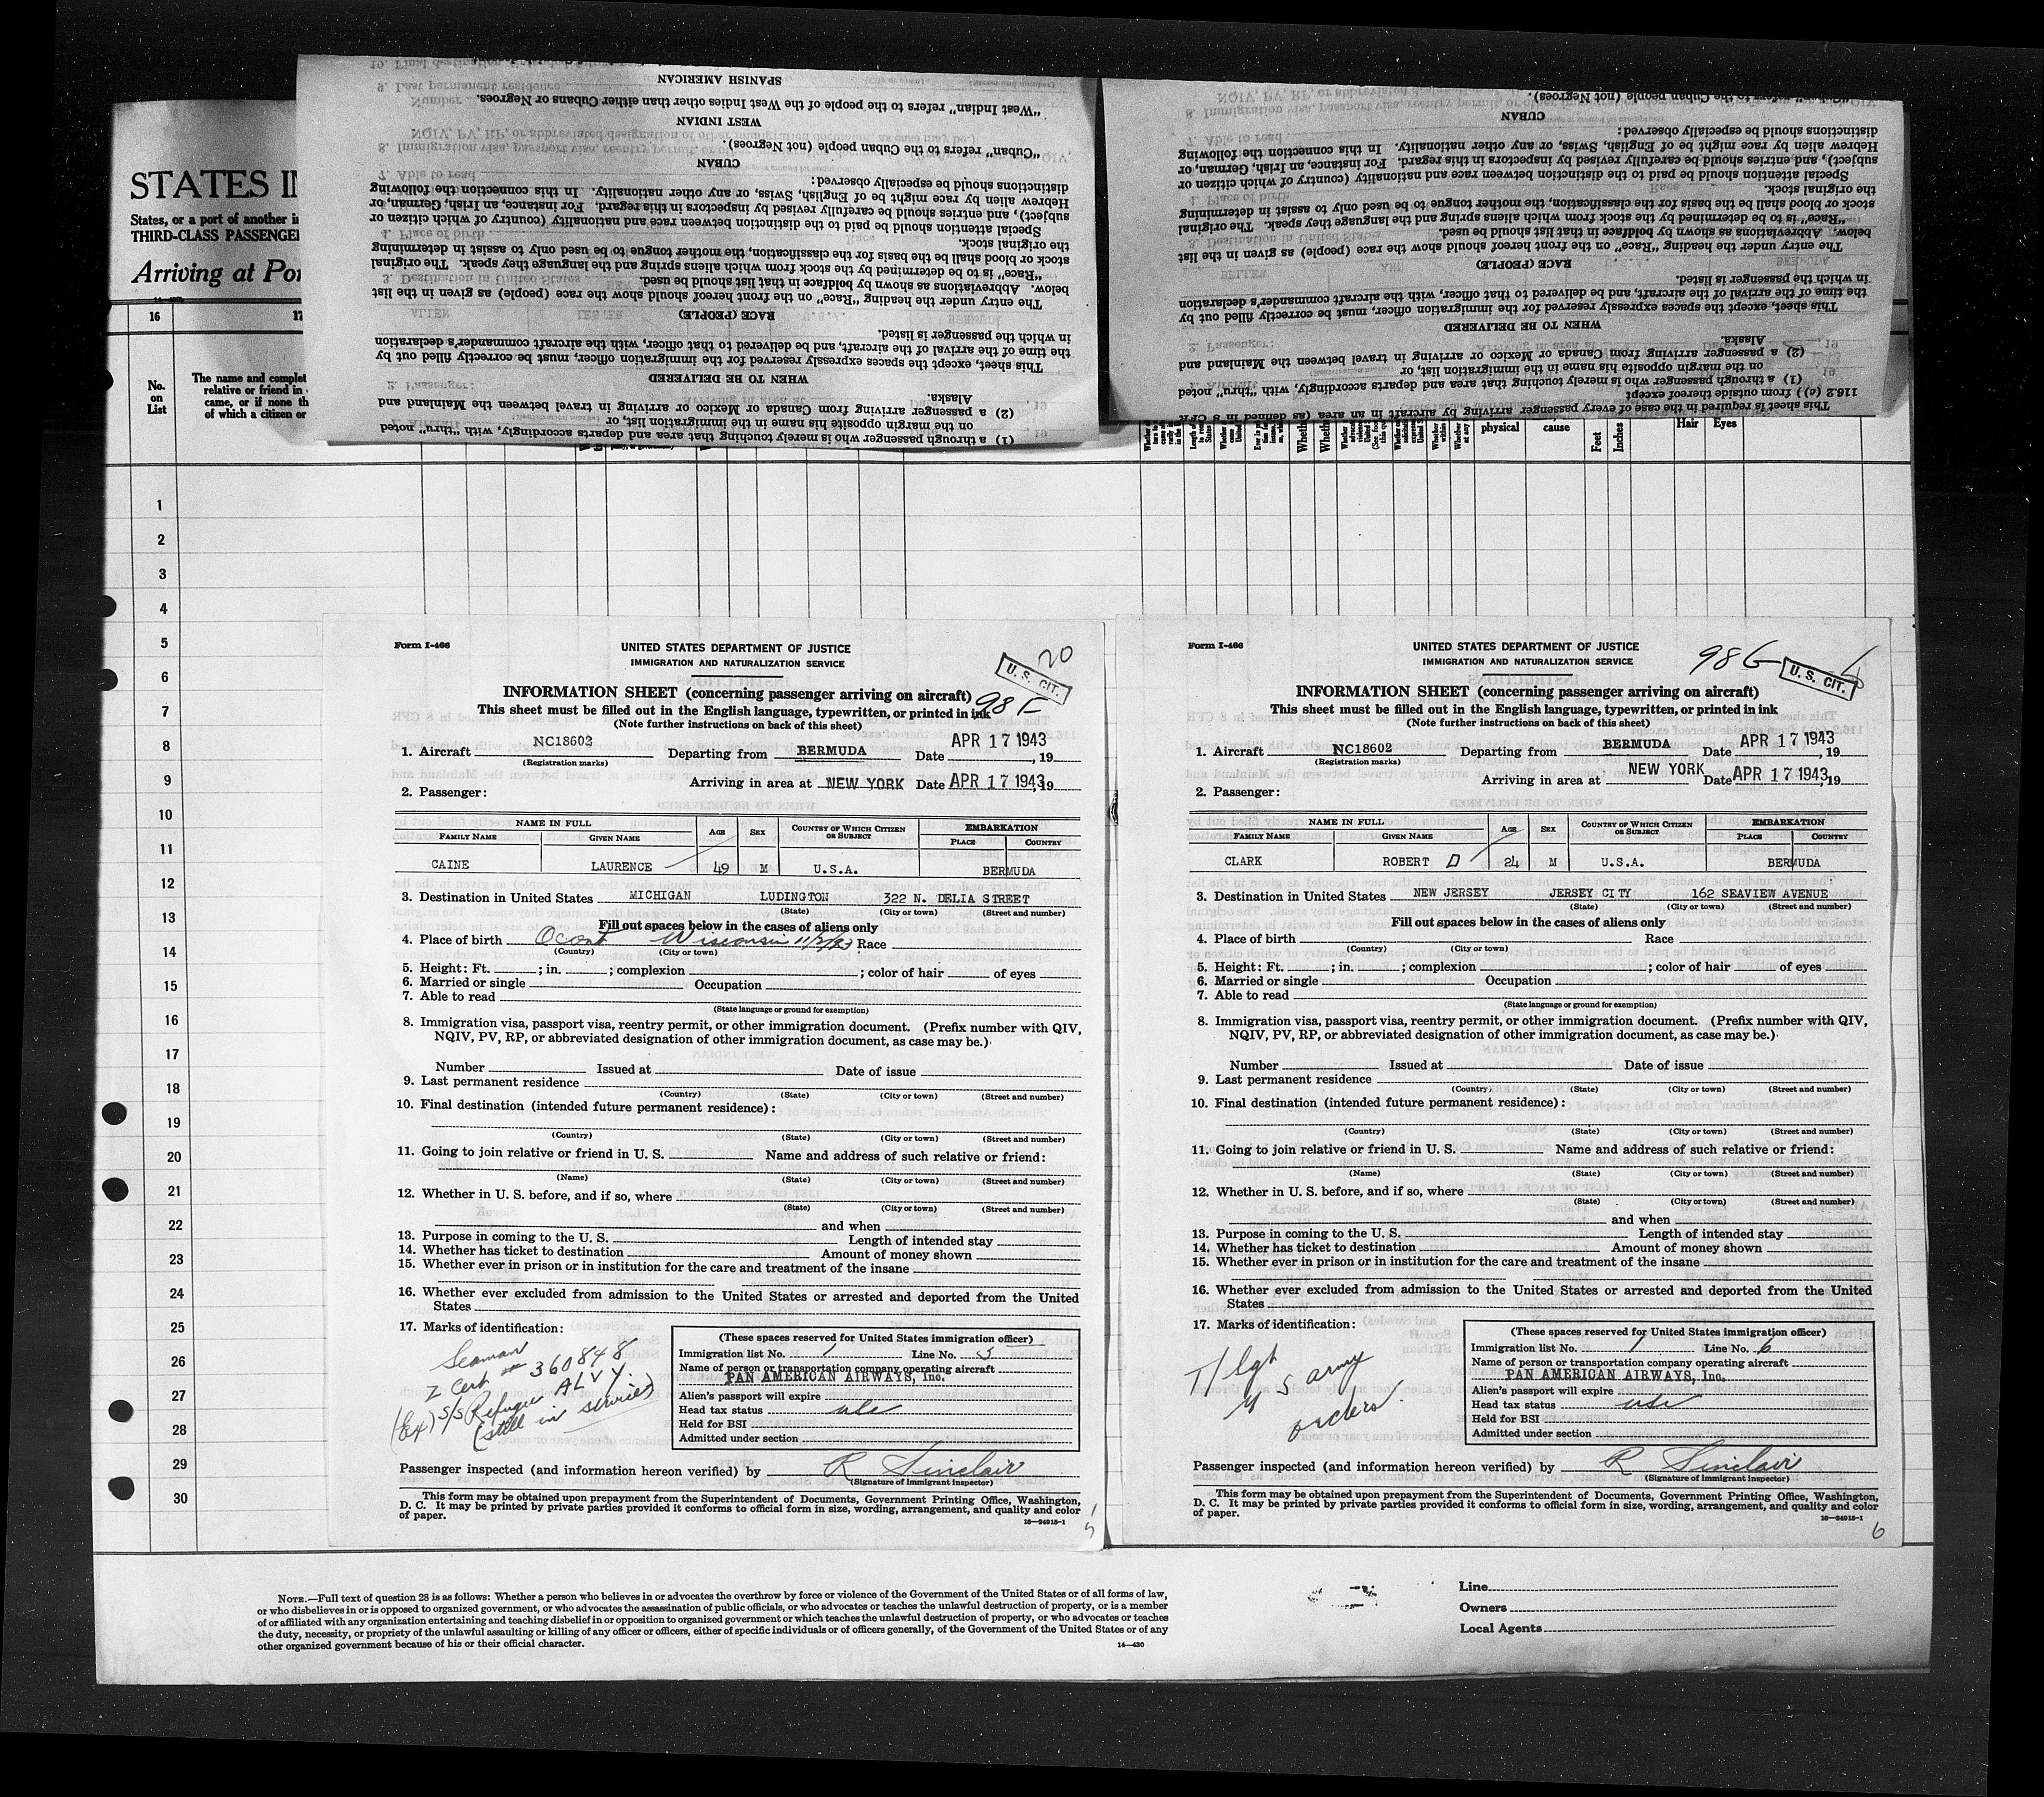 STATES IN
States, or a port of another in
THIRD-CLASS PASSENGER
Arriving at Por
16
17
No.
on
List
The name and complet
relative or friend in
came, or if none th
of which a citizen or
SPANISH AMERICAN
"West Indian" refers to the people of the West Indies other than either Cubans or Negroes.
WEST INDIAN
"Cuban" refers to the Cuban people (not Negroes).
CUBAN
distinctions should be especially observed:
Hebrew alien by race might be of English, Swiss, or any other nationality. In this connection the following
subject), and entries should be carefully revised by inspectors in this regard. For instance, an Irish, German, or
Special attention should be paid to the distinction between race and nationality (country of which citizen or
the original stock.
stock or blood shall be the basis for the classification, the mother tongue to be used only to assist in determining
"Race" is to be determined by the stock from which aliens spring and the language they speak. The original
below. Abbreviations as shown by boldface in that list should be used.
The entry under the heading "Race" on the front hereof should show the race (people) as given in the list
RACE (PEOPLE)
in which the passenger is listed.
the time of the arrival of the aircraft, and be delivered to that officer, with the aircraft commander's declaration
This sheet, except the spaces expressly reserved for the immigration officer, must be correctly filled out by
WHEN TO BE DELIVERED
Alaska.
(2) a passenger arriving from Canada or Mexico or arriving in travel between the Mainland and
on the margin opposite his name in the immigration list, or
(1) a through passenger who is merely touching that area and departs accordingly, with "thru" noted
"Cuban" refers to the Cuban people (not Negroes).
CUBAN
distinctions should be especially observed:
Hebrew alien by race might be of English, Swiss, or any other nationality. In this connection the following
subject), and entries should be carefully revised by inspectors in this regard. For instance, an Irish, German, or
Special attention should be paid to the distinction between race and nationality (country of which citizen or
the original stock.
stock or blood shall be the basis for the classification, the mother tongue to be used only to assist in determining
"Race" is to be determined by the stock from which aliens spring and the language they speak. The original
below. Abbreviations as shown by boldface in that list should be used.
The entry under the heading "Race" on the front hereof should show the race (people) as given in the list
RACE (PEOPLE)
in which the passenger is listed.
the time of the arrival of the aircraft, and be delivered to that officer, with the aircraft commander's declaration
This sheet, except the spaces expressly reserved for the immigration officer, must be correctly filled out by
WHEN TO BE DELIVERED
Alaska.
(2) a passenger arriving from Canada or Mexico or arriving in travel between the Mainland and
on the margin opposite his name in the immigration list, or
(1) a through passenger who is merely touching that area and departs accordingly, with "thru" noted
116.2 (c)) from outside thereof except
This sheet is required in the case of every passenger arriving by aircraft in an area (as defined in 8 CFR
physical
cause
Feet
Inches
Hair
Eyes
1
2
3
4
5
6
7
8
9
10
11
12
13
14
15
16
17
18
19
20
21
22
23
24
25
26
27
28
29
30
Form I-466
UNITED STATES DEPARTMENT OF JUSTICE
IMMIGRATION AND NATURALIZATION SERVICE
20
U. S. CIT.
98 F
INFORMATION SHEET (concerning passenger arriving on aircraft)
This sheet must be filled out in the English language, typewritten, or printed in ink
(Note further instructions on back of this sheet)
1. Aircraft NC18602 Departing from BERMUDA Date APR 17 1943, 19
(Registration marks)
Arriving in area at NEW YORK Date APR 17 1943, 19
2. Passenger:
NAME IN FULL AGE SEX COUNTRY OF WHICH CITIZEN OR SUBJECT EMBARKATION
FAMILY NAME GIVEN NAME PLACE COUNTRY
CAINE LAURENCE 49 M U.S.A. BERMUDA
3. Destination in United States MICHIGAN LUDINGTON 322 N. DELIA STREET
(State) (City or town) (Street and number)
Fill out spaces below in the cases of aliens only
4. Place of birth Ocont Wisconsin 11/2/93 Race
(Country) (City or town)
5. Height: Ft. ; in. ; complexion ; color of hair of eyes
6. Married or single Occupation
7. Able to read
(State language or ground for exemption)
8. Immigration visa, passport visa, reentry permit, or other immigration document. (Prefix number with QIV,
NQIV, PV, RP, or abbreviated designation of other immigration document, as case may be.)
Number Issued at Date of issue
9. Last permanent residence
(Country) (State) (City or town) (Street and number)
10. Final destination (intended future permanent residence):
(Country) (State) (City or town) (Street and number)
11. Going to join relative or friend in U. S. Name and address of such relative or friend:
(Name) (State) (City or town) (Street and number)
12. Whether in U. S. before, and if so, where
(State) (City or town) (Street and number)
and when
13. Purpose in coming to the U. S. Length of intended stay
14. Whether has ticket to destination Amount of money shown
15. Whether ever in prison or in institution for the care and treatment of the insane
16. Whether ever excluded from admission to the United States or arrested and deported from the United
States
17. Marks of identification:
Seaman
Z Cert 360848
ALVY
(Ex) S/S Refugee
(still in service)
(These spaces reserved for United States immigration officer)
Immigration list No. 1 Line No. 5
Name of person or transportation company operating aircraft
PAN AMERICAN AIRWAYS, Inc.
Alien's passport will expire
Head tax status usc
Held for BSI
Admitted under section
Passenger inspected (and information hereon verified) by R Sinclair
(Signature of immigrant inspector)
This form may be obtained upon prepayment from the Superintendent of Documents, Government Printing Office, Washington,
D. C. It may be printed by private parties provided it conforms to official form in size, wording, arrangement, and quality and color
of paper.
16—24915-1
5
Form I-466
UNITED STATES DEPARTMENT OF JUSTICE
IMMIGRATION AND NATURALIZATION SERVICE
98 G
U. S. CIT.
6
INFORMATION SHEET (concerning passenger arriving on aircraft)
This sheet must be filled out in the English language, typewritten, or printed in ink
(Note further instructions on back of this sheet)
1. Aircraft NC18602 Departing from BERMUDA Date APR 17 1943, 19
(Registration marks)
Arriving in area at NEW YORK Date APR 17 1943, 19
2. Passenger:
NAME IN FULL AGE SEX COUNTRY OF WHICH CITIZEN OR SUBJECT EMBARKATION
FAMILY NAME GIVEN NAME PLACE COUNTRY
CLARK ROBERT D 24 M U.S.A. BERMUDA
3. Destination in United States NEW JERSEY JERSEY CITY 162 SEAVIEW AVENUE
(State) (City or town) (Street and number)
Fill out spaces below in the cases of aliens only
4. Place of birth Race
(Country) (City or town)
5. Height: Ft. ; in. ; complexion ; color of hair of eyes
6. Married or single Occupation
7. Able to read
(State language or ground for exemption)
8. Immigration visa, passport visa, reentry permit, or other immigration document. (Prefix number with QIV,
NQIV, PV, RP, or abbreviated designation of other immigration document, as case may be.)
Number Issued at Date of issue
9. Last permanent residence
(Country) (State) (City or town) (Street and number)
10. Final destination (intended future permanent residence):
(Country) (State) (City or town) (Street and number)
11. Going to join relative or friend in U. S. Name and address of such relative or friend:
(Name) (State) (City or town) (Street and number)
12. Whether in U. S. before, and if so, where
(State) (City or town) (Street and number)
and when
13. Purpose in coming to the U. S. Length of intended stay
14. Whether has ticket to destination Amount of money shown
15. Whether ever in prison or in institution for the care and treatment of the insane
16. Whether ever excluded from admission to the United States or arrested and deported from the United
States
17. Marks of identification:
T/Sgt
U S army
orders.
(These spaces reserved for United States immigration officer)
Immigration list No. 1 Line No. 6
Name of person or transportation company operating aircraft
PAN AMERICAN AIRWAYS, Inc.
Alien's passport will expire
Head tax status usc
Held for BSI
Admitted under section
Passenger inspected (and information hereon verified) by R Sinclair
(Signature of immigrant inspector)
This form may be obtained upon prepayment from the Superintendent of Documents, Government Printing Office, Washington,
D. C. It may be printed by private parties provided it conforms to official form in size, wording, arrangement, and quality and color
of paper.
16—24915-1
6
NOTE.—Full text of question 28 is as follows: Whether a person who believes in or advocates the overthrow by force or violence of the Government of the United States or of all forms of law,
or who disbelieves in or is opposed to organized government, or who advocates the assassination of public officials, or who advocates or teaches the unlawful destruction of property, or is a member
of or affiliated with any organization entertaining and teaching disbelief in or opposition to organized government or which teaches the unlawful destruction of property, or who advocates or teaches
the duty, necessity, or propriety of the unlawful assaulting or killing of any officer or officers, either of specific individuals or of officers generally, of the Government of the United States or of any
other organized government because of his or their official character.
14—430
Line
Owners
Local Agents